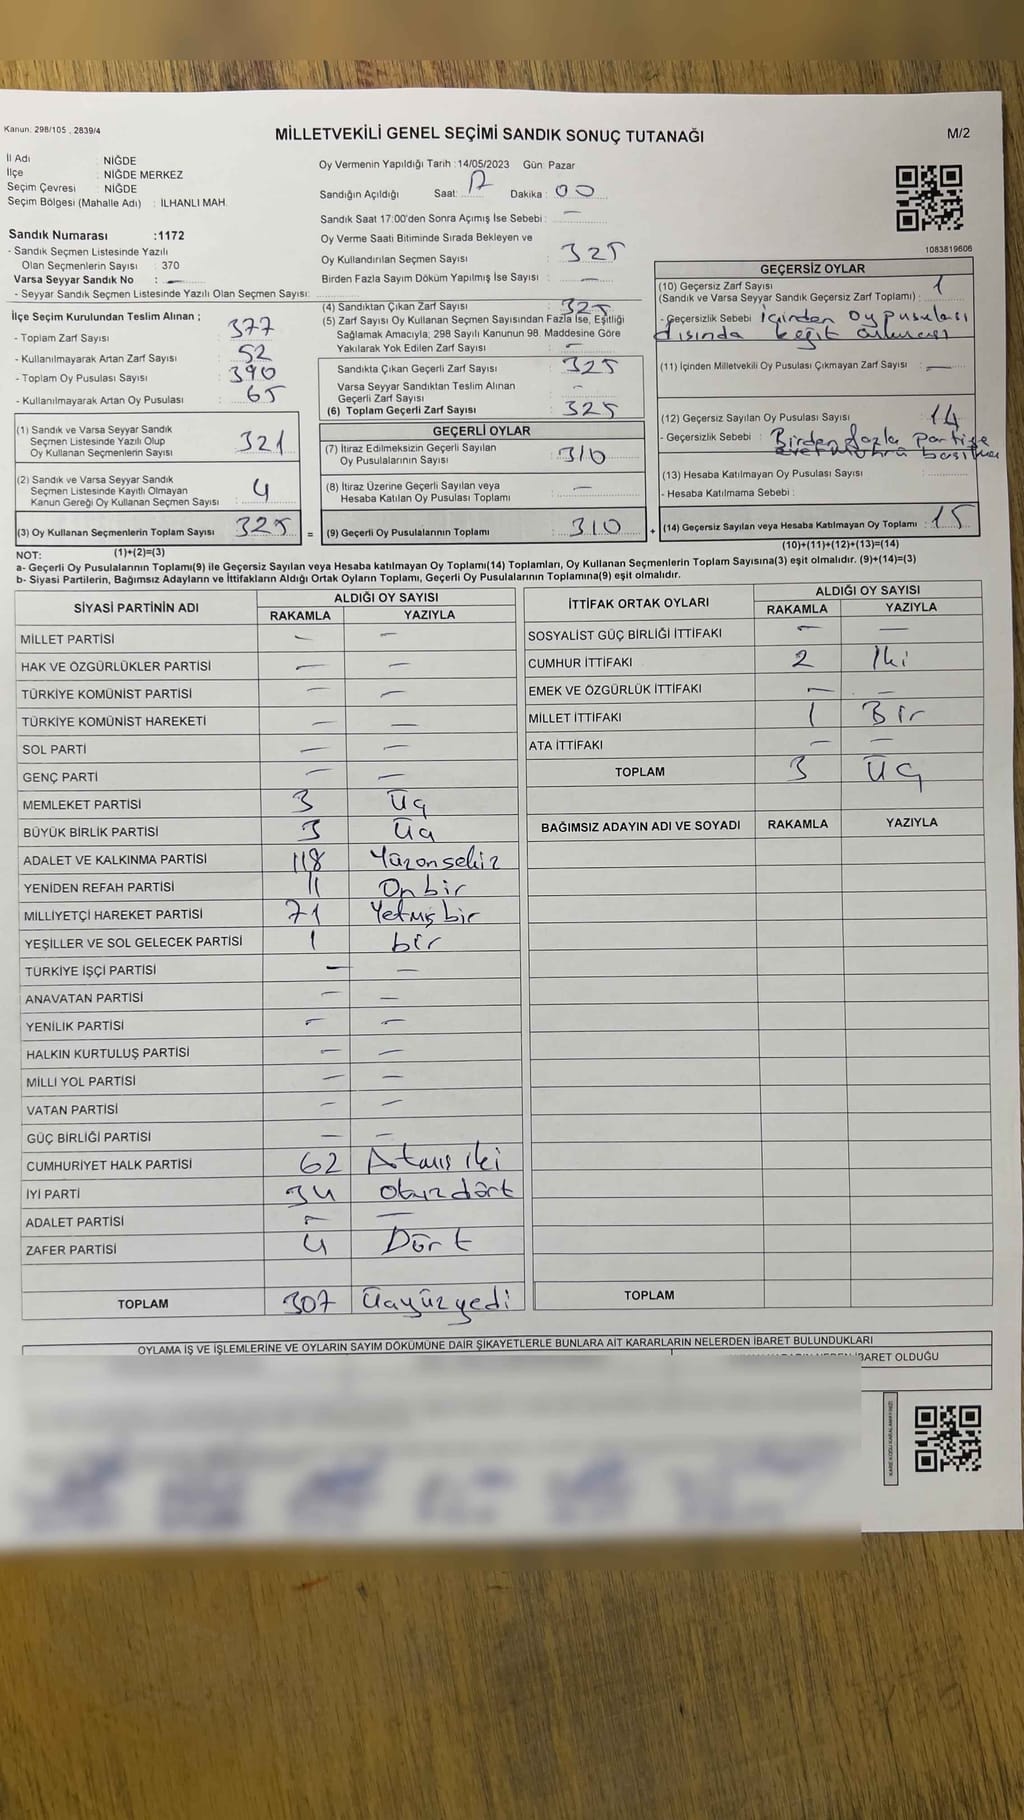 Kanun: 298/105 , 2839/4
MİLLETVEKİLİ GENEL SEÇİMİ SANDIK SONUÇ TUTANAĞI
M/2
İl Adı : NİĞDE
İlçe : NİĞDE MERKEZ
Seçim Çevresi : NİĞDE
Seçim Bölgesi (Mahalle Adı) : İLHANLI MAH.
Sandık Numarası :1172
- Sandık Seçmen Listesinde Yazılı
Olan Seçmenlerin Sayısı : 370
Varsa Seyyar Sandık No : —
- Seyyar Sandık Seçmen Listesinde Yazılı Olan Seçmen Sayısı:
Oy Vermenin Yapıldığı Tarih :14/05/2023 Gün: Pazar
Sandığın Açıldığı Saat: 17 Dakika : 00
Sandık Saat 17:00'den Sonra Açımış İse Sebebi : —
Oy Verme Saati Bitiminde Sırada Bekleyen ve
Oy Kullandırılan Seçmen Sayısı : 325
Birden Fazla Sayım Döküm Yapılmış İse Sayısı : —
1083819606
İlçe Seçim Kurulundan Teslim Alınan ;
- Toplam Zarf Sayısı : 377
- Kullanılmayarak Artan Zarf Sayısı : 52
- Toplam Oy Pusulası Sayısı : 390
- Kullanılmayarak Artan Oy Pusulası : 65
(1) Sandık ve Varsa Seyyar Sandık
Seçmen Listesinde Yazılı Olup
Oy Kullanan Seçmenlerin Sayısı : 321
(2) Sandık ve Varsa Seyyar Sandık
Seçmen Listesinde Kayıtlı Olmayan
Kanun Gereği Oy Kullanan Seçmen Sayısı : 4
(3) Oy Kullanan Seçmenlerin Toplam Sayısı : 325
(1)+(2)=(3)
(4) Sandıktan Çıkan Zarf Sayısı : 325
(5) Zarf Sayısı Oy Kullanan Seçmen Sayısından Fazla İse, Eşitliği
Sağlamak Amacıyla; 298 Sayılı Kanunun 98. Maddesine Göre
Yakılarak Yok Edilen Zarf Sayısı : —
Sandıkta Çıkan Geçerli Zarf Sayısı : 325
Varsa Seyyar Sandıktan Teslim Alınan
Geçerli Zarf Sayısı : -
(6) Toplam Geçerli Zarf Sayısı : 325
GEÇERLİ OYLAR
(7) İtiraz Edilmeksizin Geçerli Sayılan
Oy Pusulalarının Sayısı : 310
(8) İtiraz Üzerine Geçerli Sayılan veya
Hesaba Katılan Oy Pusulası Toplamı : —
= (9) Geçerli Oy Pusulalarının Toplamı : 310 +
GEÇERSİZ OYLAR
(10) Geçersiz Zarf Sayısı
(Sandık ve Varsa Seyyar Sandık Geçersiz Zarf Toplamı) : 1
- Geçersizlik Sebebi : içinden oy pusulası
dışında
(11) İçinden Milletvekili Oy Pusulası Çıkmayan Zarf Sayısı : —
(12) Geçersiz Sayılan Oy Pusulası Sayısı : 14
- Geçersizlik Sebebi : Birden fazla partiye
evet
(13) Hesaba Katılmayan Oy Pusulası Sayısı :
- Hesaba Katılmama Sebebi :
(14) Geçersiz Sayılan veya Hesaba Katılmayan Oy Toplamı : 15
(10)+(11)+(12)+(13)=(14)
NOT:
a- Geçerli Oy Pusulalarının Toplamı(9) ile Geçersiz Sayılan veya Hesaba katılmayan Oy Toplamı(14) Toplamları, Oy Kullanan Seçmenlerin Toplam Sayısına(3) eşit olmalıdır. (9)+(14)=(3)
b- Siyasi Partilerin, Bağımsız Adayların ve İttifakların Aldığı Ortak Oyların Toplamı, Geçerli Oy Pusulalarının Toplamına(9) eşit olmalıdır.
SİYASİ PARTİNİN ADI ALDIĞI OY SAYISI
RAKAMLA YAZIYLA
MİLLET PARTİSİ — —
HAK VE ÖZGÜRLÜKLER PARTİSİ — —
TÜRKİYE KOMÜNİST PARTİSİ — —
TÜRKİYE KOMÜNİST HAREKETİ — —
SOL PARTİ — —
GENÇ PARTİ — —
MEMLEKET PARTİSİ 3 Üç
BÜYÜK BİRLİK PARTİSİ 3 Üç
ADALET VE KALKINMA PARTİSİ 118 Yüzonsekiz
YENİDEN REFAH PARTİSİ 11 On bir
MİLLİYETÇİ HAREKET PARTİSİ 71 Yetmiş bir
YEŞİLLER VE SOL GELECEK PARTİSİ 1 bir
TÜRKİYE İŞÇİ PARTİSİ — —
ANAVATAN PARTİSİ — —
YENİLİK PARTİSİ — —
HALKIN KURTULUŞ PARTİSİ — —
MİLLİ YOL PARTİSİ — —
VATAN PARTİSİ — —
GÜÇ BİRLİĞİ PARTİSİ — —
CUMHURİYET HALK PARTİSİ 62 Atmış iki
İYİ PARTİ 34 Otuz dört
ADALET PARTİSİ — —
ZAFER PARTİSİ 4 Dört
TOPLAM 307 Üçyüz yedi
İTTİFAK ORTAK OYLARI ALDIĞI OY SAYISI
RAKAMLA YAZIYLA
SOSYALİST GÜÇ BİRLİĞİ İTTİFAKI — —
CUMHUR İTTİFAKI 2 İki
EMEK VE ÖZGÜRLÜK İTTİFAKI — —
MİLLET İTTİFAKI 1 Bir
ATA İTTİFAKI — —
TOPLAM 3 Üç
BAĞIMSIZ ADAYIN ADI VE SOYADI RAKAMLA YAZIYLA
TOPLAM
OYLAMA İŞ VE İŞLEMLERİNE VE OYLARIN SAYIM DÖKÜMÜNE DAİR ŞİKAYETLERLE BUNLARA AİT KARARLARIN NELERDEN İBARET BULUNDUKLARI
İBARET OLDUĞU
KARE KODU KARALAMAYINIZ!